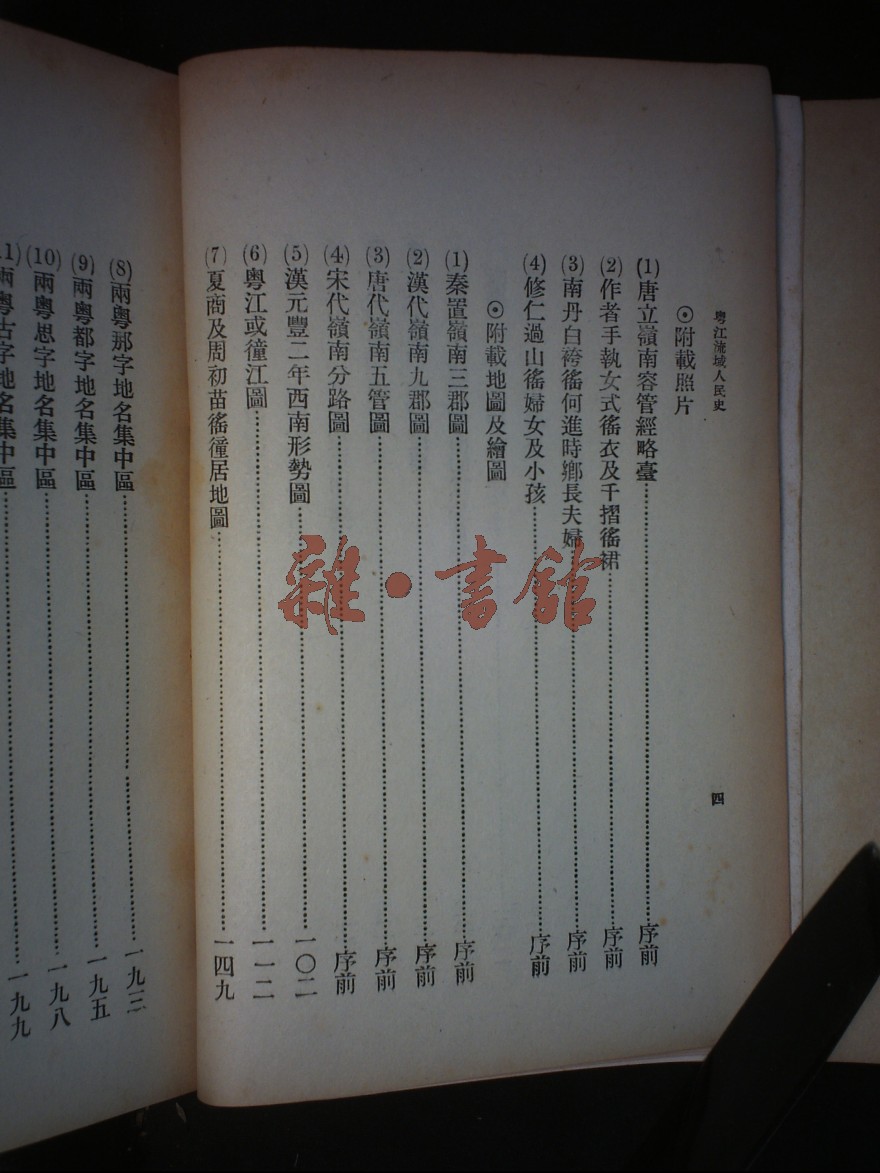 粵江流域人民史
四
⊙附載照片
(1)唐立嶺南容管經略臺……序前
(2)作者手執女式徭衣及千摺徭裙……序前
(3)南丹白袴徭何進時鄉長夫婦……序前
(4)修仁過山徭婦女及小孩……序前
⊙附載地圖及繪圖
(1)秦置嶺南三郡圖……序前
(2)漢代嶺南九郡圖……序前
(3)唐代嶺南五管圖……序前
(4)宋代嶺南分路圖……序前
(5)漢元豐二年西南形勢圖……一〇二
(6)粵江或徸江圖……一一二
(7)夏商及周初苗徭徸居地圖……一四九
(8)兩粵那字地名集中區……一九三
(9)兩粵都字地名集中區……一九五
(10)兩粵思字地名集中區……一九八
(11)兩粵古字地名集中區……一九九
雜·書館